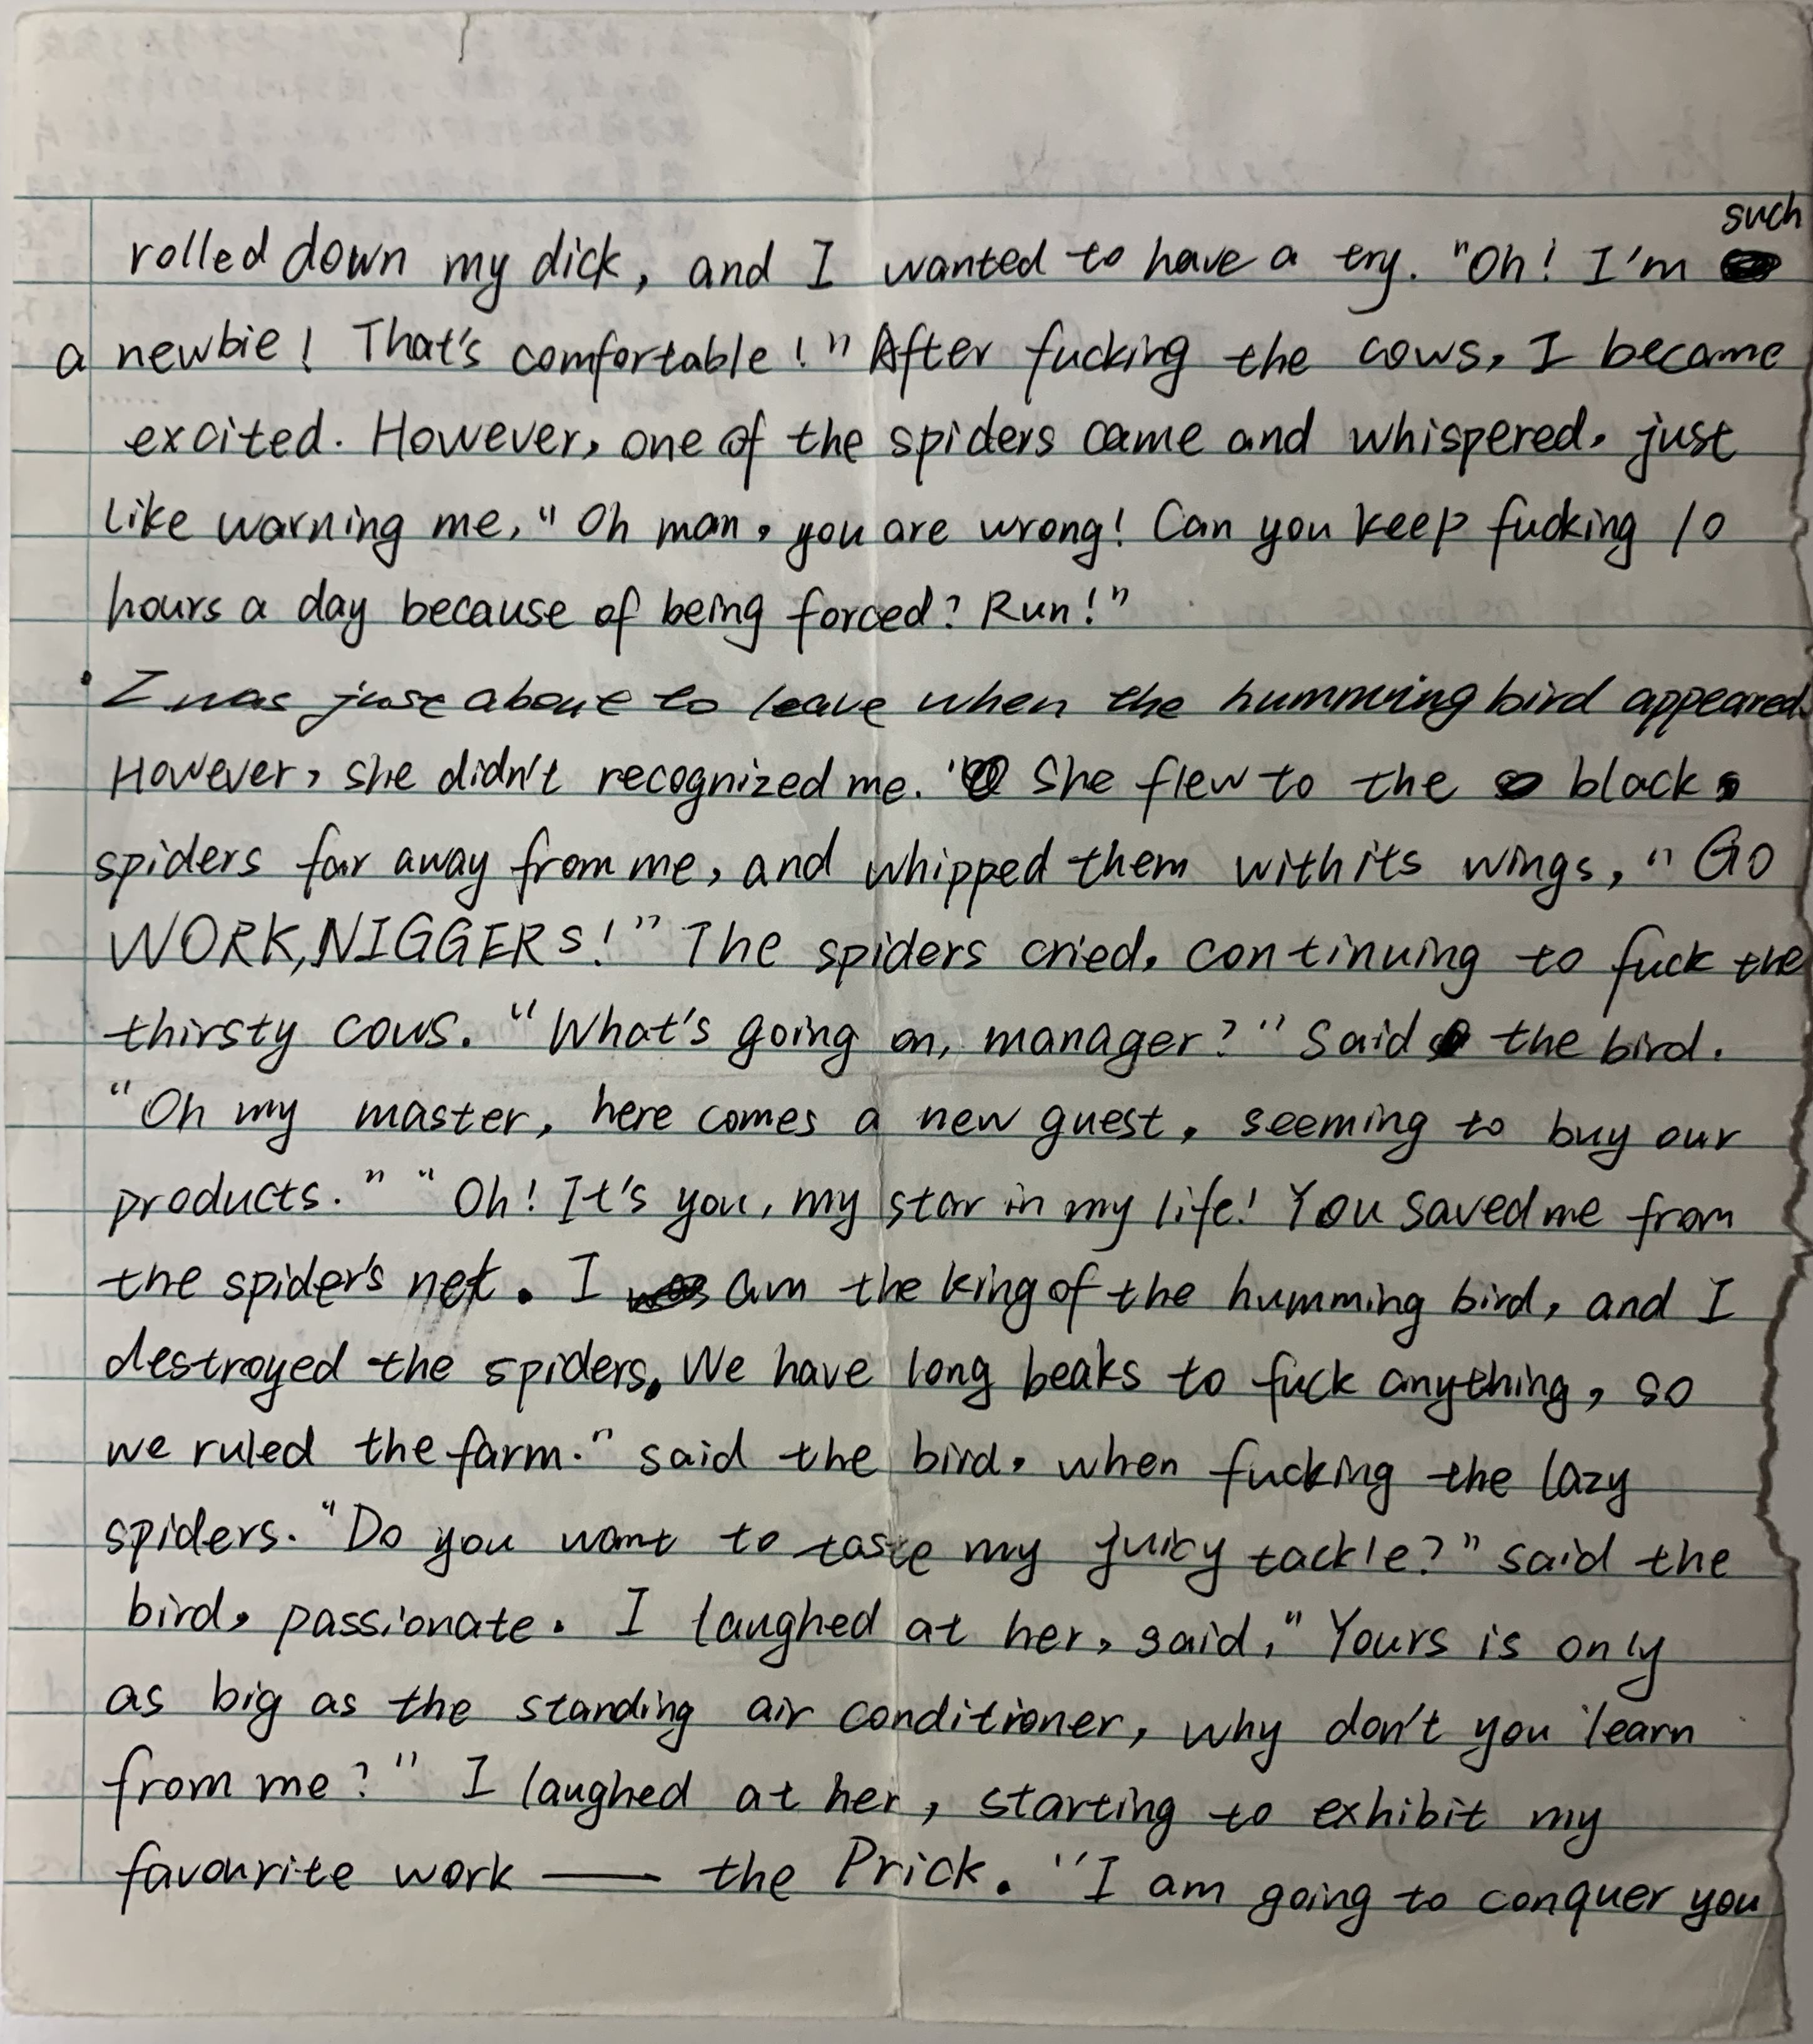 such
rolled down my dick, and I wanted to have a try. "Oh! I'm
a newbie! That's comfortable!" After fucking the cows, I became
excited. However, one of the spiders came and whispered, just
like warning me, "Oh man, you are wrong! Can you keep fucking 10
hours a day because of being forced? Run!"
I was just about to leave when the humming bird appeared.
However, she didn't recognized me. She flew to the black
spiders far away from me, and whipped them with its wings, "GO
WORK, NIGGERS!" The spiders cried, continuing to fuck the
thirsty cows. "What's going on, manager?" Said the bird.
"Oh my master, here comes a new guest, seeming to buy our
products." "Oh! It's you, my star in my life! You saved me from
the spider's net. I am the king of the humming bird, and I
destroyed the spiders. We have long beaks to fuck anything, so
we ruled the farm." said the bird, when fucking the lazy
spiders. "Do you want to taste my juicy tackle?" said the
bird, passionate. I laughed at her, said, "Yours is only
as big as the standing air conditioner, why don't you learn
from me?" I laughed at her, starting to exhibit my
favourite work — the Prick. "I am going to conquer you